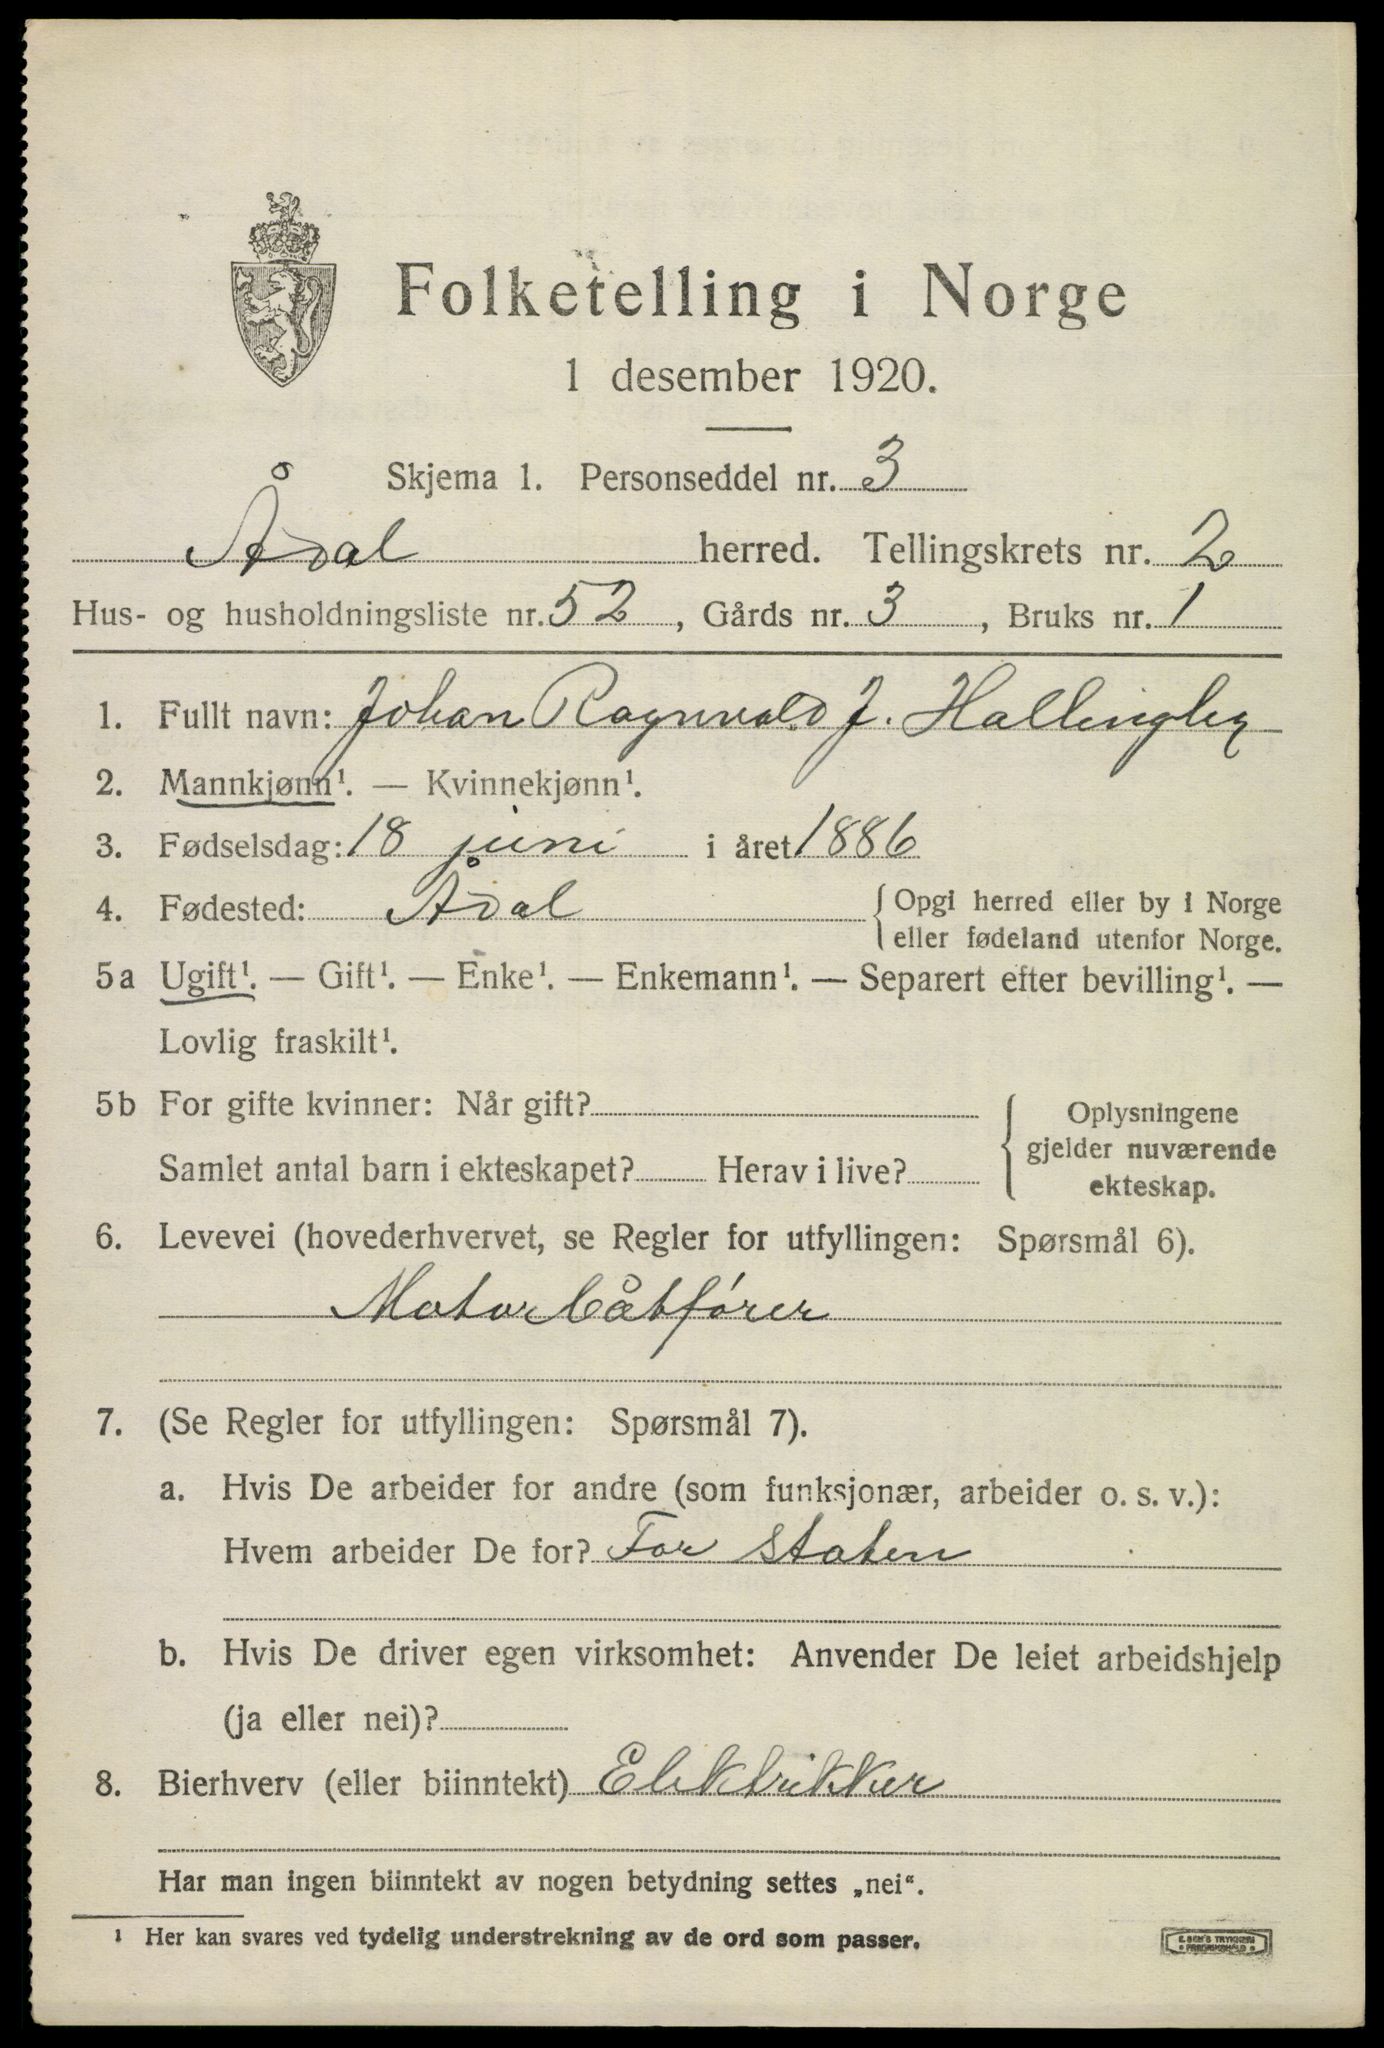 Folketelling i Norge
1 desember 1920.
Skjema 1. Personseddel nr. 3
Ådal herred. Tellingskrets nr. 2
Hus- og husholdningsliste nr. 52, Gårds nr. 3, Bruks nr. 1
1. Fullt navn: Johan Ragnvald J. Hallingby
2. Mannkjønn¹. — Kvinnekjønn¹.
3. Fødselsdag: 18 juni i året 1886
4. Fødested: Ådal { Opgi herred eller by i Norge
eller fødeland utenfor Norge.
5a Ugift¹. — Gift¹. — Enke¹. — Enkemann¹. — Separert efter bevilling¹. —
Lovlig fraskilt¹.
5b For gifte kvinner: Når gift?
Samlet antal barn i ekteskapet? Herav i live?
{ Oplysningene
gjelder nuværende
ekteskap.
6. Levevei (hovederhvervet, se Regler for utfyllingen: Spørsmål 6).
Motorbåtfører
7. (Se Regler for utfyllingen: Spørsmål 7).
a. Hvis De arbeider for andre (som funksjonær, arbeider o. s. v.):
Hvem arbeider De for? For staten
b. Hvis De driver egen virksomhet: Anvender De leiet arbeidshjelp
(ja eller nei)?
8. Bierhverv (eller biinntekt) Elektrikker
Har man ingen biinntekt av nogen betydning settes „nei“.
¹ Her kan svares ved tydelig understrekning av de ord som passer.